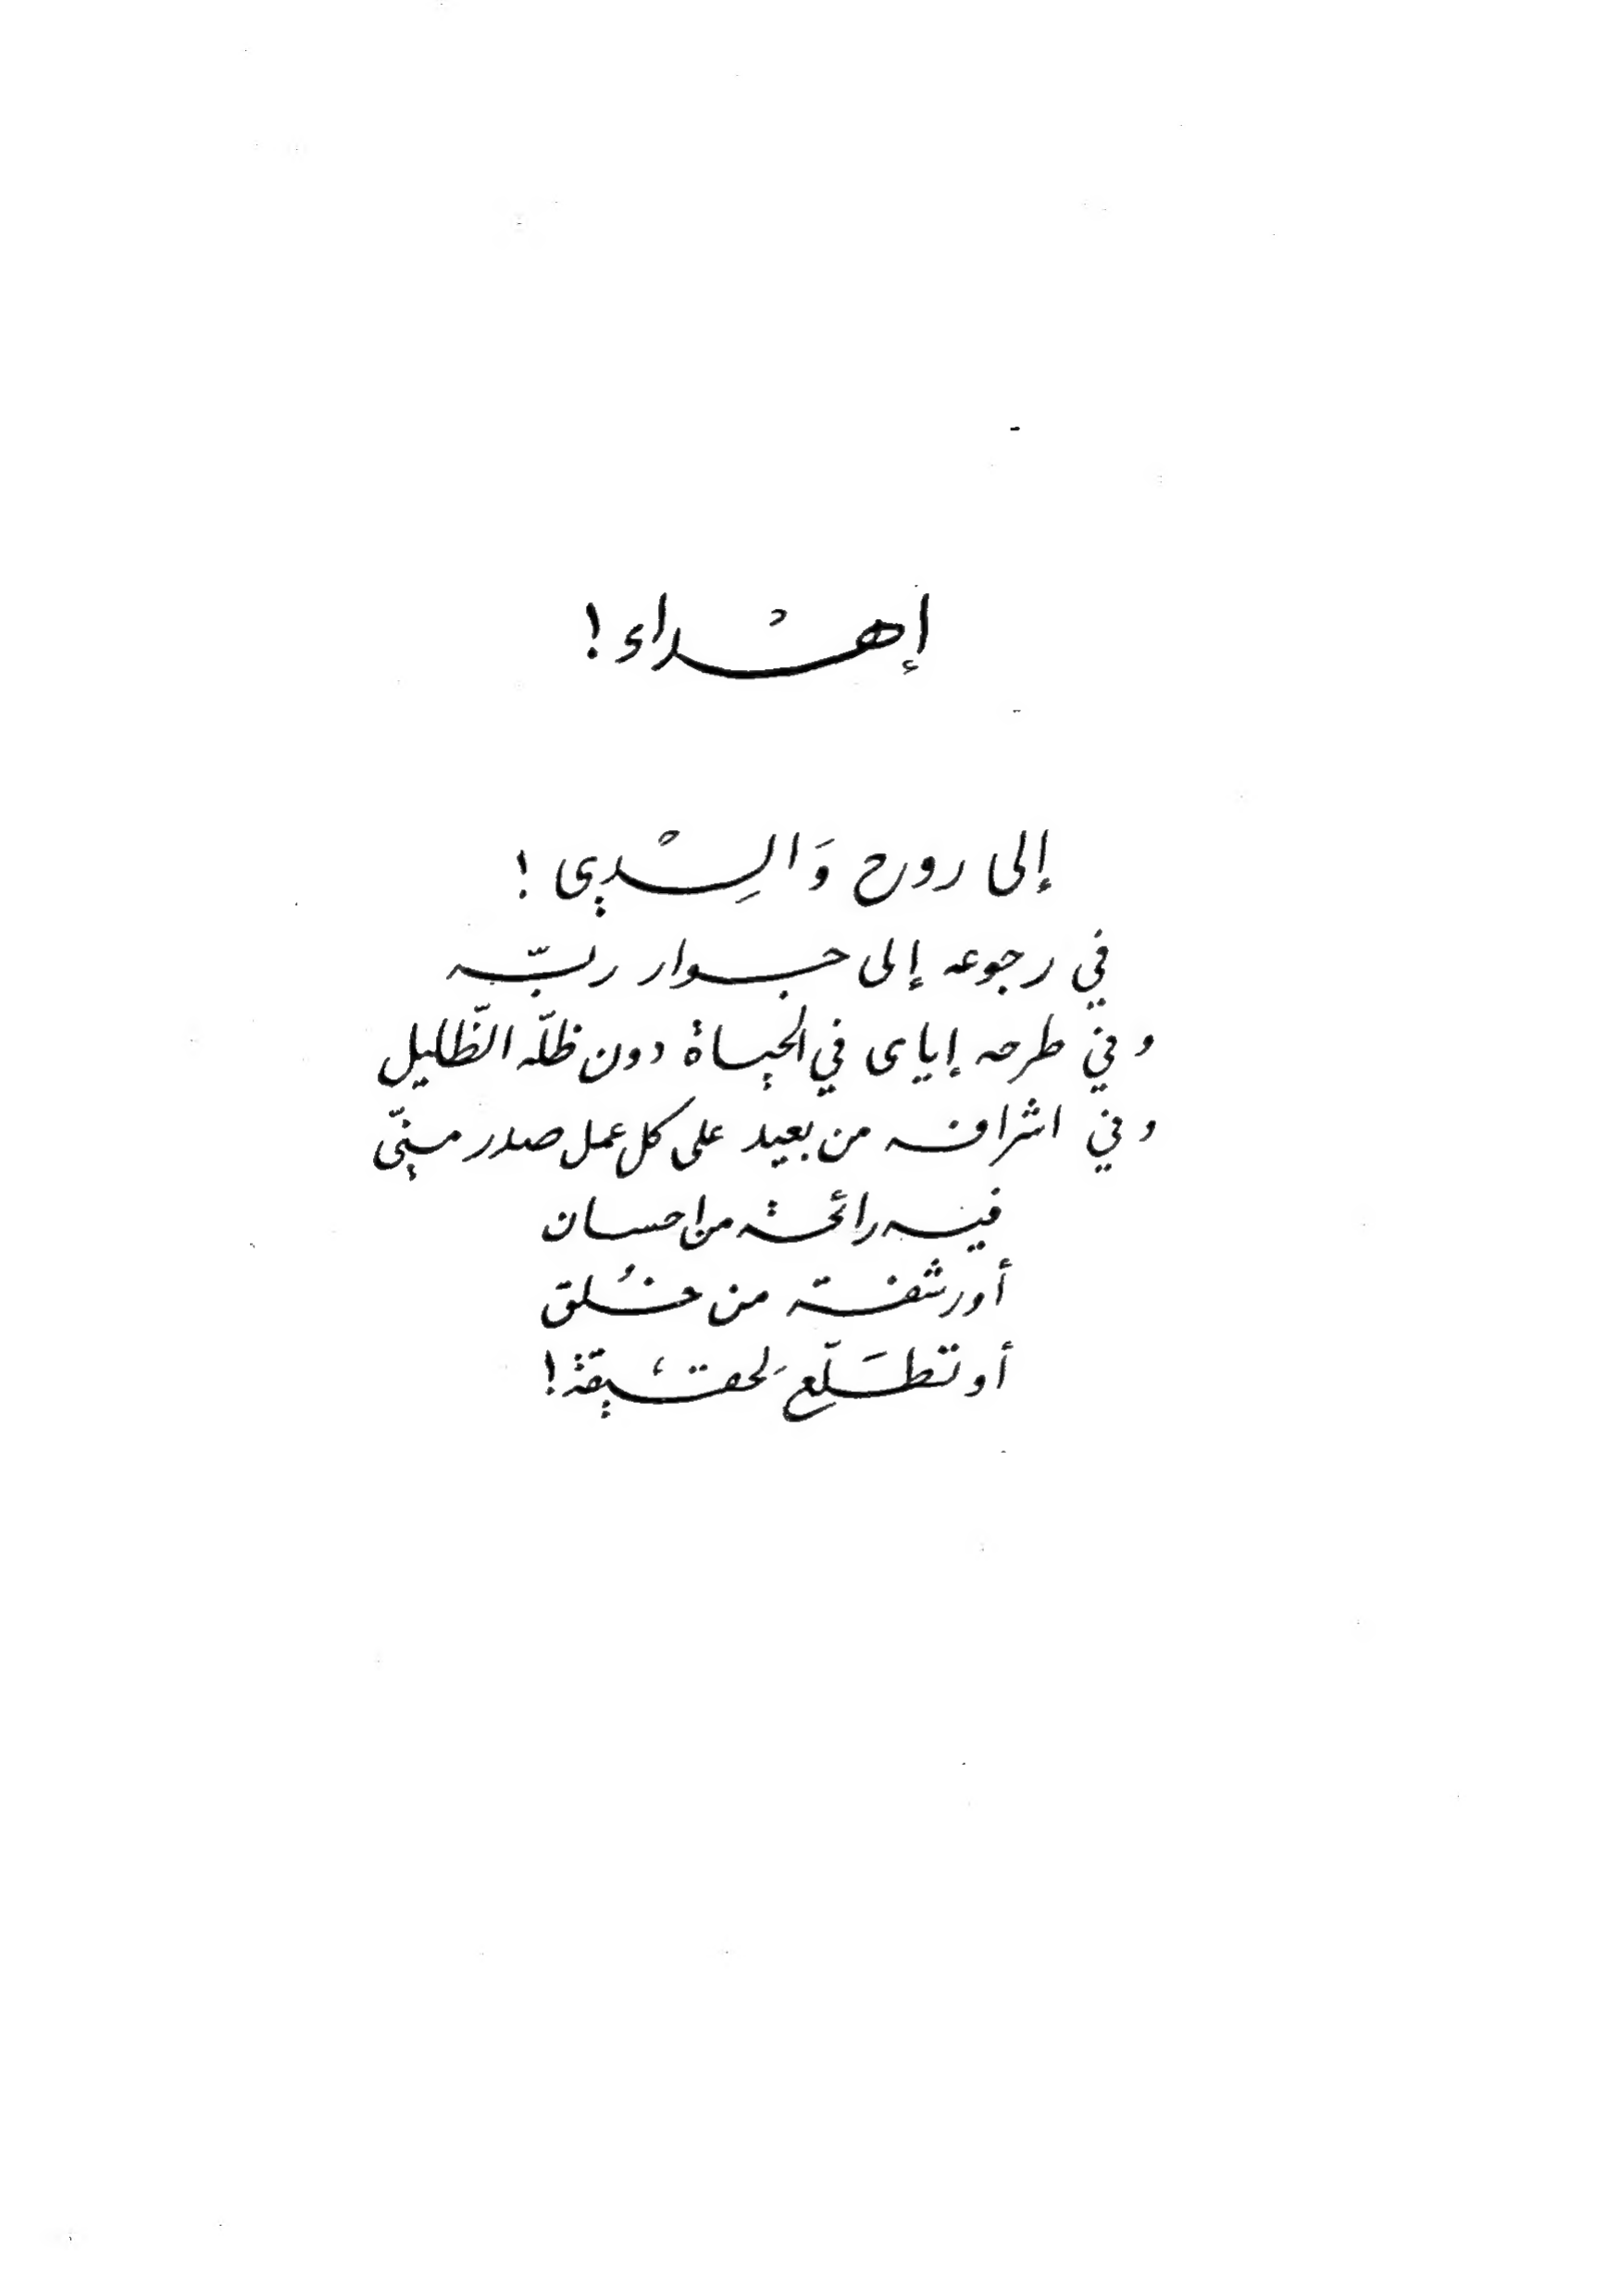 إهداء !
إلى روح وَالِدي !
في رجوعه إلى جوار ربّه
وفي طرحه إياى في الحياة دون ظلّه الظّليل
وفي اشرافه من بعيد على كل عمل صدر منّي
فيه رائحة من احسان
أو رشفة من خُلق
أو تطَلّع لحقيقة !